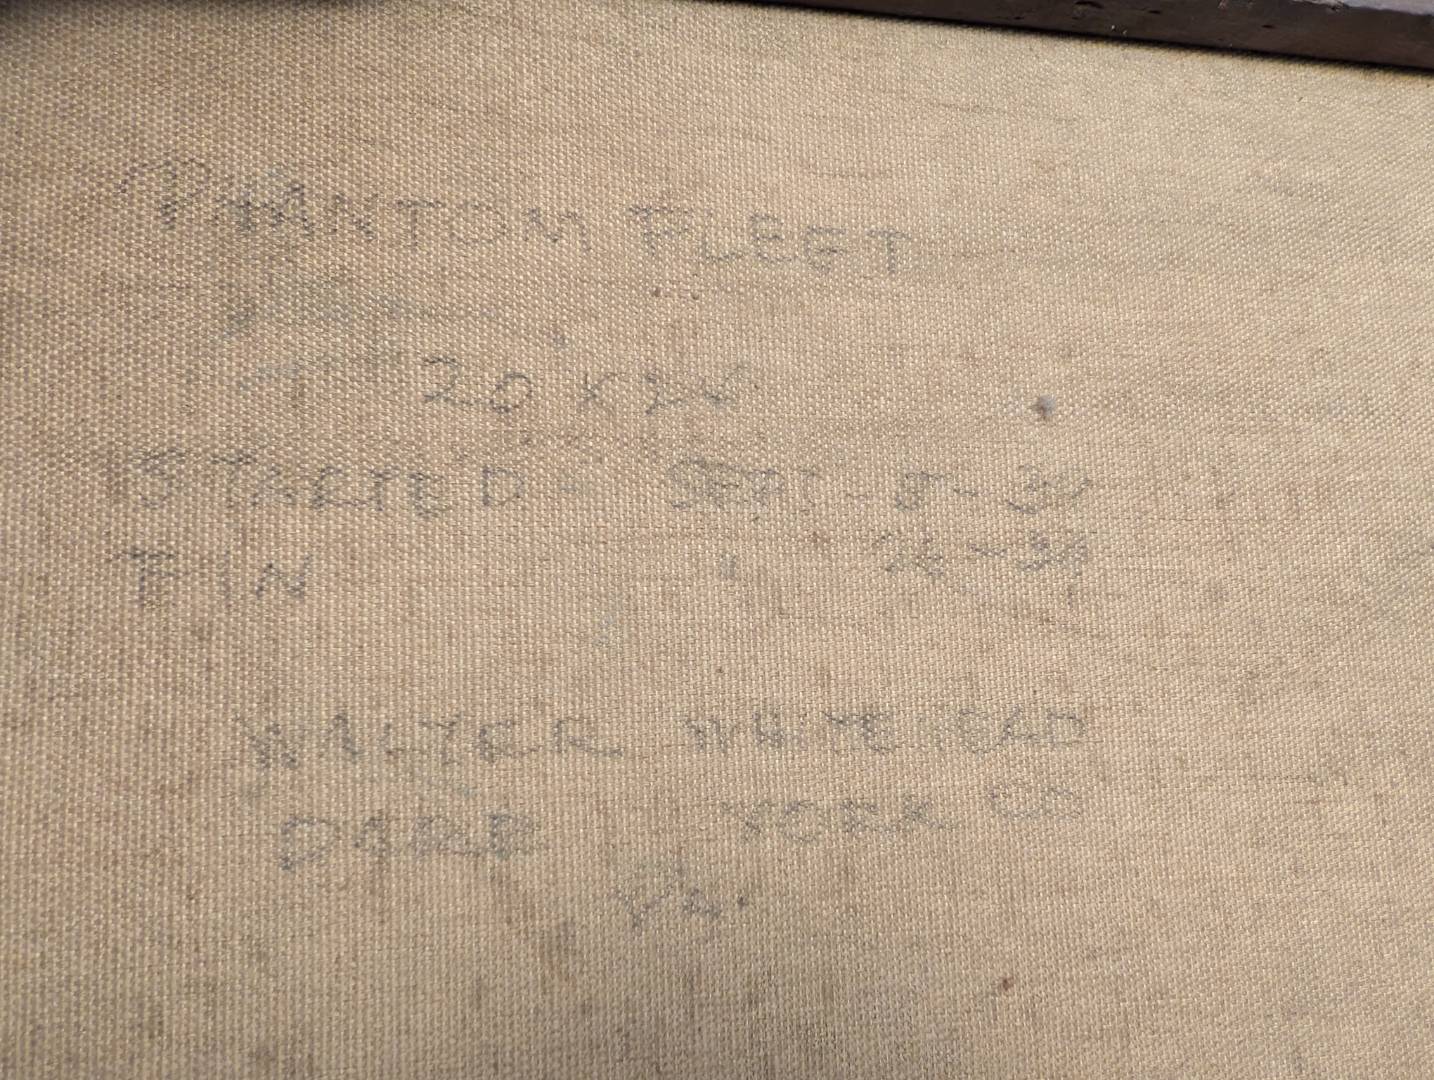 PHANTOM FLEET
20 X 24
STARTED - SEPT - 5 - 34
FIN " 24 - 34
WALTER WHITEHEAD
YORK CO
Pa.